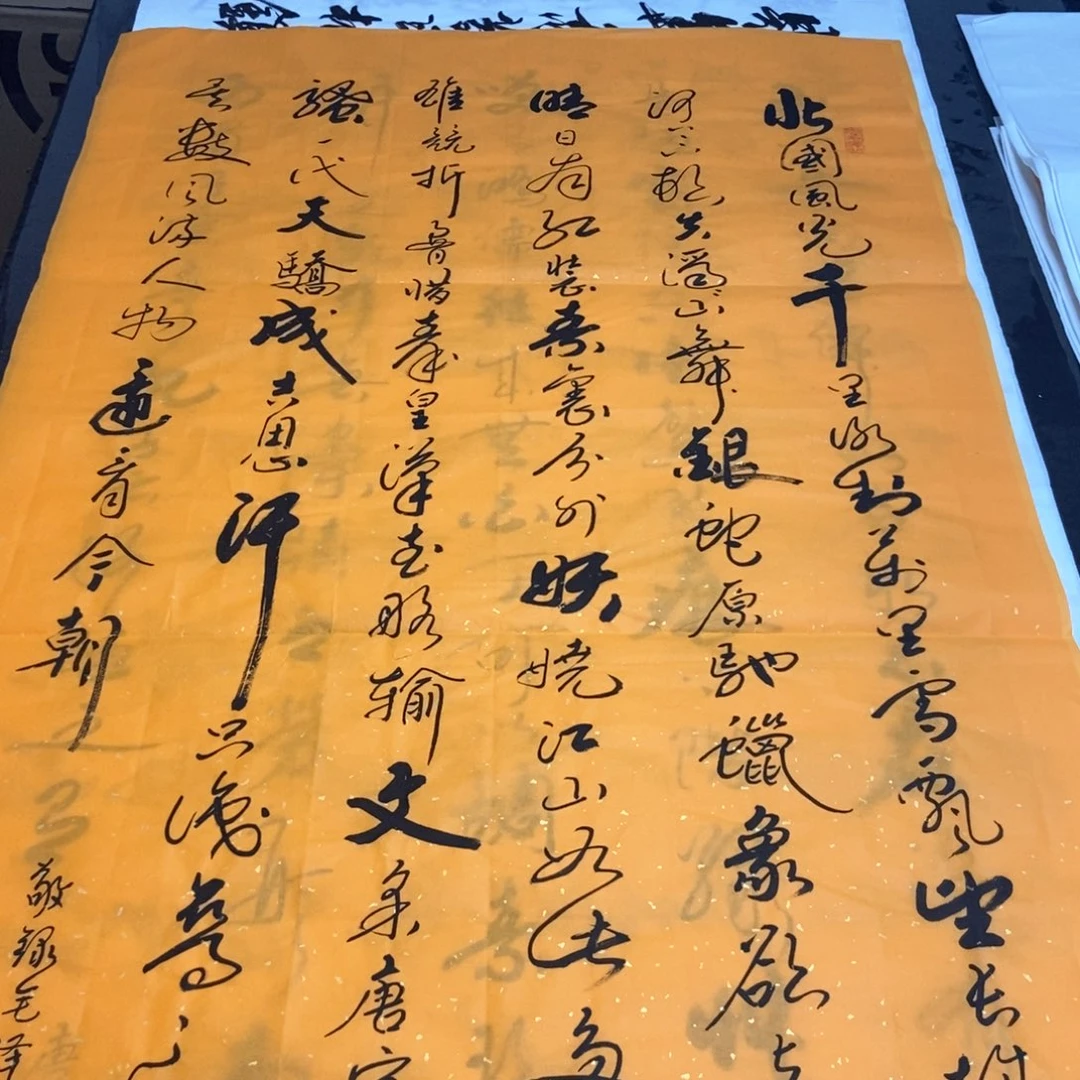 北國風光千里冰封萬里雪飄望長城
河上下頓失滔々山舞銀蛇原馳蠟象欲与
晴日看紅裝素裹分外妖嬈江山如此多
雄競折腰惜秦皇漢武略輸文采唐宗
騷一代天驕成吉思汗只識彎
矣數風流人物還看今朝
敬錄毛澤